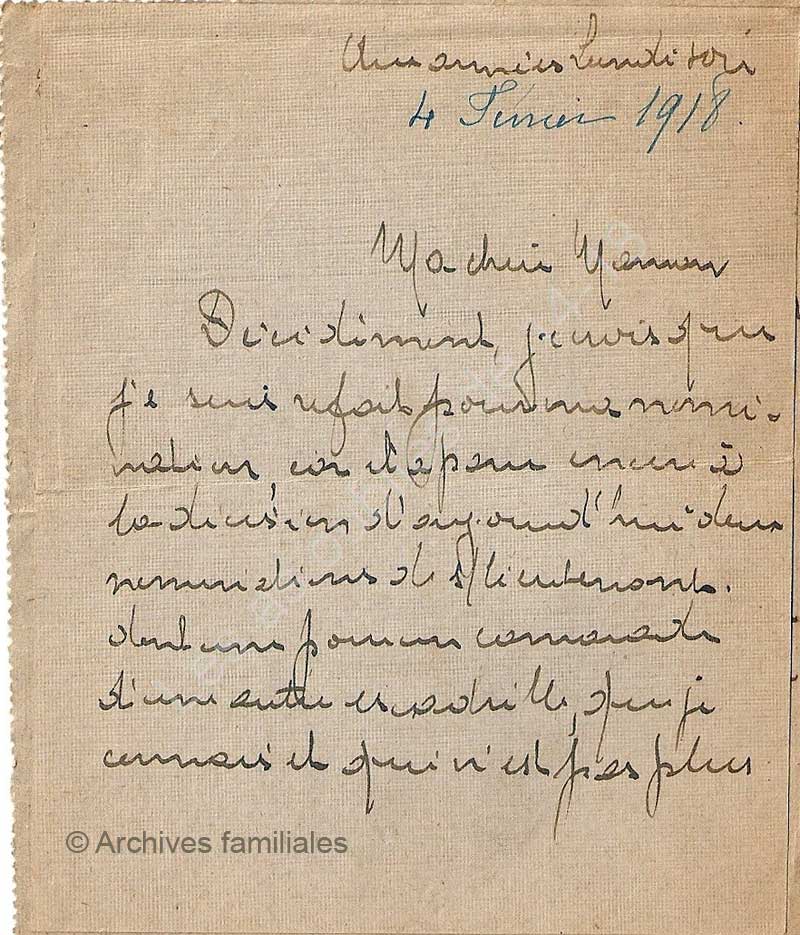 Aux armées Lundi soir
4 Février 1918.
Ma chère Maman
Décidément, je crois que
je suis refait pour ma nomi-
nation, car il a paru encore à
la décision d'aujourd'hui deux
nominations de S/lieutenant.
dont une pour un camarade
d'une autre escadrille, que je
connais et qui n'est pas plus
© Archives familiales